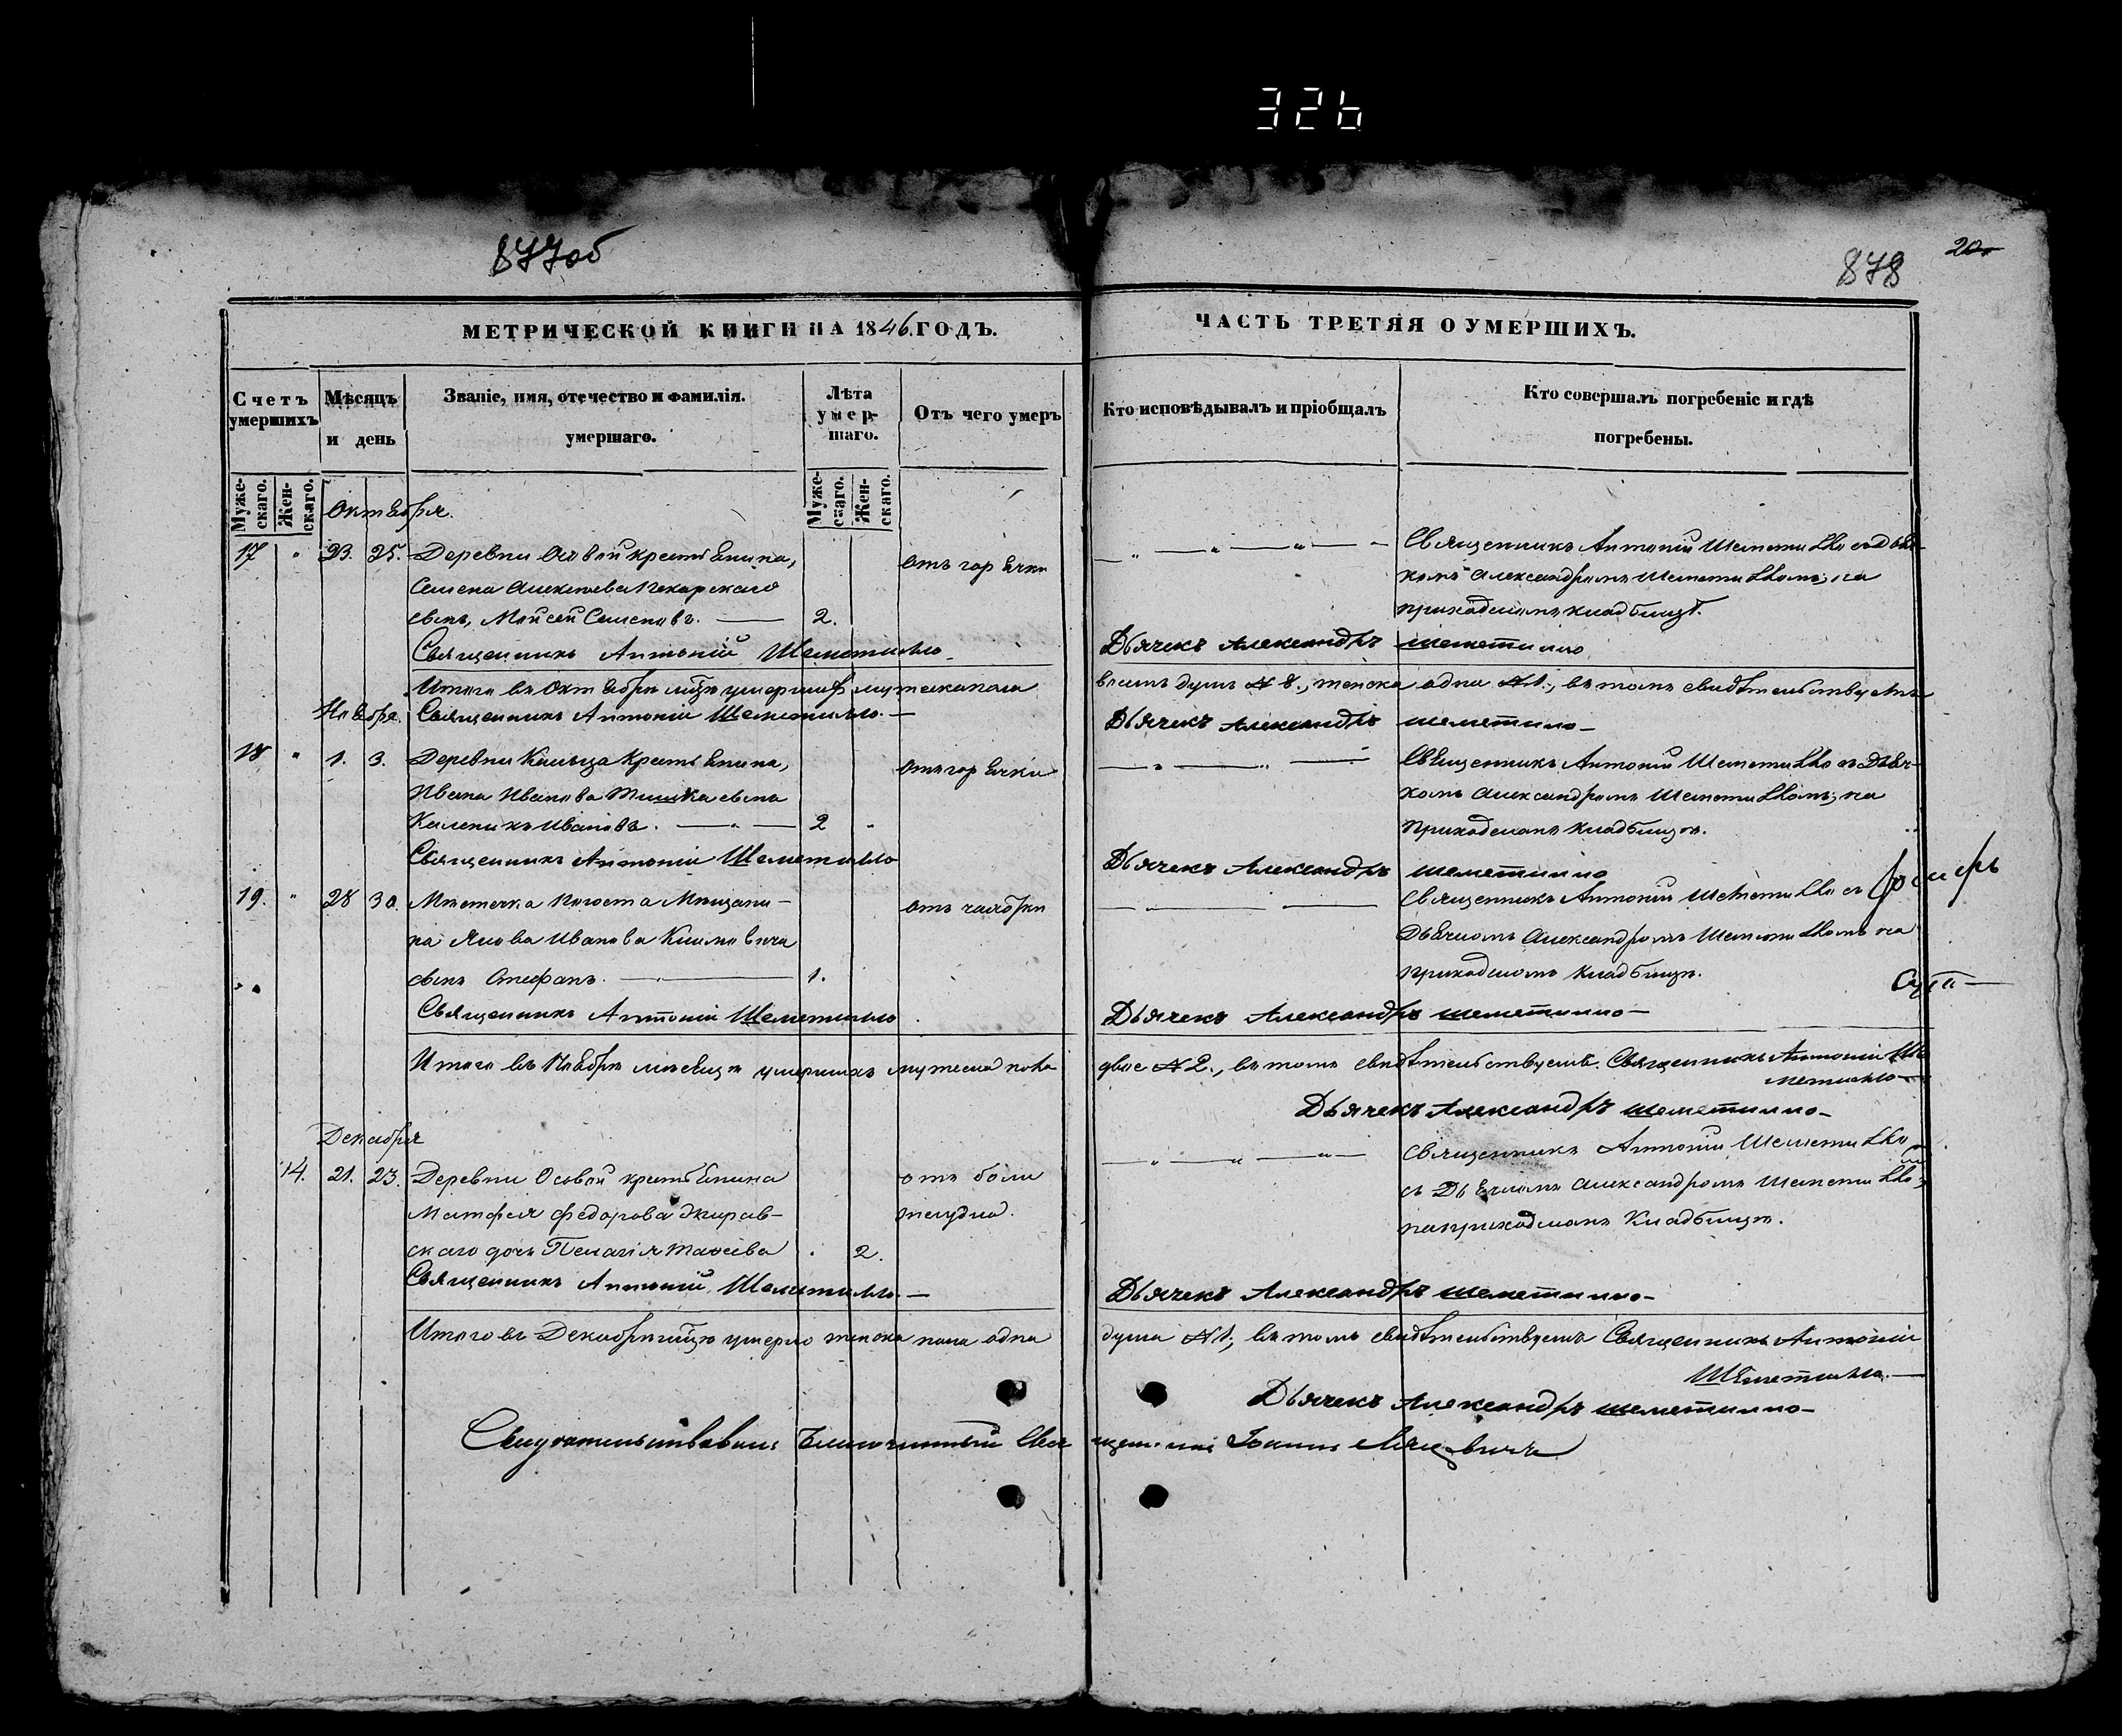 326
877об
878
20
МЕТРИЧЕСКОЙ КНИГИ НА 1846. ГОДЪ.
ЧАСТЬ ТРЕТЯЯ О УМЕРШИХЪ.
Счетъ умершихъ
Мѣсяцъ и день
Званіе, имя, отечество и фамилія.
умершаго.
Лѣта умершаго.
Отъ чего умеръ
Кто исповѣдывалъ и пріобщалъ
Кто совершалъ погребеніе и гдѣ
погребены.
Мужескаго.
Женскаго.
Мужескаго.
Женскаго.
Октября.
17 " 23. 25. Деревни Осовой крестьянина,
Семена Алексѣева Пекарскаго
сынъ, Моисей Семеновъ. — 2.
отъ горячки
Священникъ Антоній Шеметилло съ дьяч-
комъ Александромъ Шеметилломъ; на
приходскомъ кладбищѣ.
Священникъ Антоній Шеметилло
Дьячекъ Александръ Шеметилло
Итого въ Октябрѣ мцѣ умершихъ мужеска пола
восемъ душъ № 8., женска одна № 1., въ томъ свидѣтельствуетъ
Ноября. Священникъ Антоній Шеметилло. —
Дьячекъ Александръ Шеметилло —
18 " 1. 3. Деревни Кольца Крестьянина,
Ивана Иванова Тишка сынъ
Каленикъ Ивановъ. — " — 2 "
отъ горячки
Священникъ Антоній Шеметилло съ Дьяч-
комъ Александромъ Шеметилломъ; на
приходскомъ кладбищѣ.
Священникъ Антоній Шеметилло
Дьячекъ Александръ Шеметилло
19. " 28 30. Мѣстечка Погоста Мѣщани-
на Якова Иванова Климовича
сынъ Стефанъ. — 1.
Священникъ Антоній Шеметилло съ
Дьячкомъ Александромъ Шеметилломъ на
приходскомъ кладбищѣ.
Священникъ Антоній Шеметилло
Дьячекъ Александръ Шеметилло —
Итого въ Ноябрѣ мѣсяцѣ умершихъ мужеска пола
двое № 2., въ томъ свидѣтельствуемъ. Священникъ Антоній Ше-
метилло —
Дьячекъ Александръ Шеметилло —
Декабря
14. 21. 23. Деревни Осовой крестьянина
Матфея Федорова Жирав-
скаго дочь Пелагія . 2.
отъ боли
желудка.
Священникъ Антоній Шеметилло
съ Дьячкомъ Александромъ Шеметилло
на приходскомъ Кладбищѣ.
Священникъ Антоній Шеметилло. —
Дьячекъ Александръ Шеметилло —
Итого въ Декабрѣ мцѣ умерло женска пола одна
душа № 1., въ томъ свидѣтельствуемъ Священникъ Антоній
Шеметилло. —
Дьячекъ Александръ Шеметилло —
Свидѣтельствовалъ Благочинный Священникъ Іоаннъ